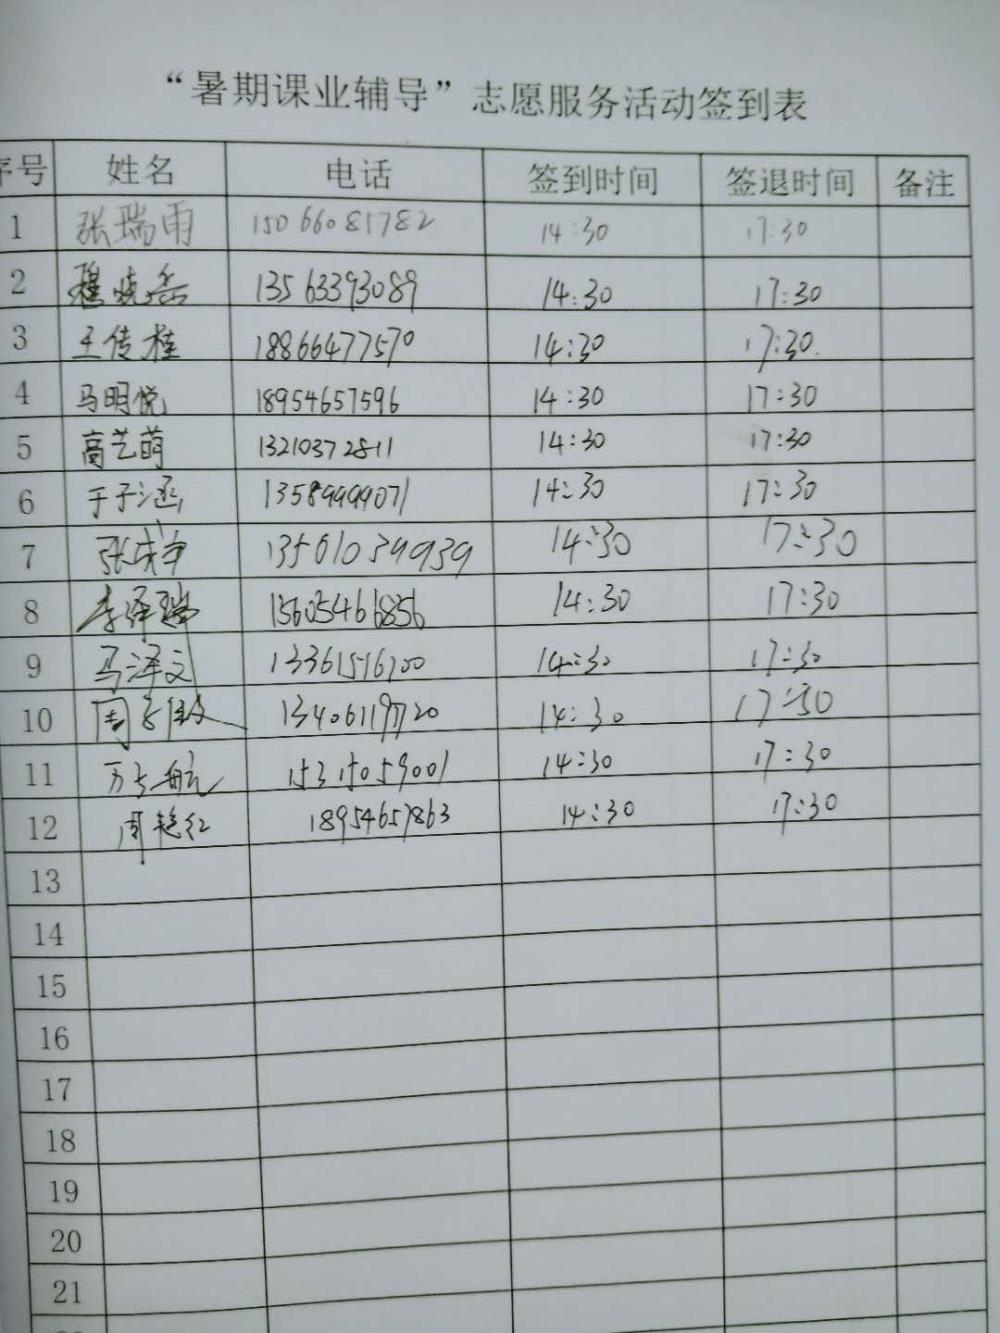 “暑期课业辅导”志愿服务活动签到表
序号 姓名 电话 签到时间 签退时间 备注
1 张瑞雨 15066085782 14:30 17:30
2 13563393089 14:30 17:30
3 王传桂 18866477570 14:30 17:30
4 马明悦 18954657596 14:30 17:30
5 高艺萌 13210372811 14:30 17:30
6 于子涵 13589999071 14:30 17:30
7 13501039939 14:30 17:30
8 李泽瑞 15605466856 14:30 17:30
9 马泽文 13361516700 14:30 17:30
10 14:30 17:30
11 15315059001 14:30 17:30
12 周艳红 18954657863 14:30 17:30
13
14
15
16
17
18
19
20
21